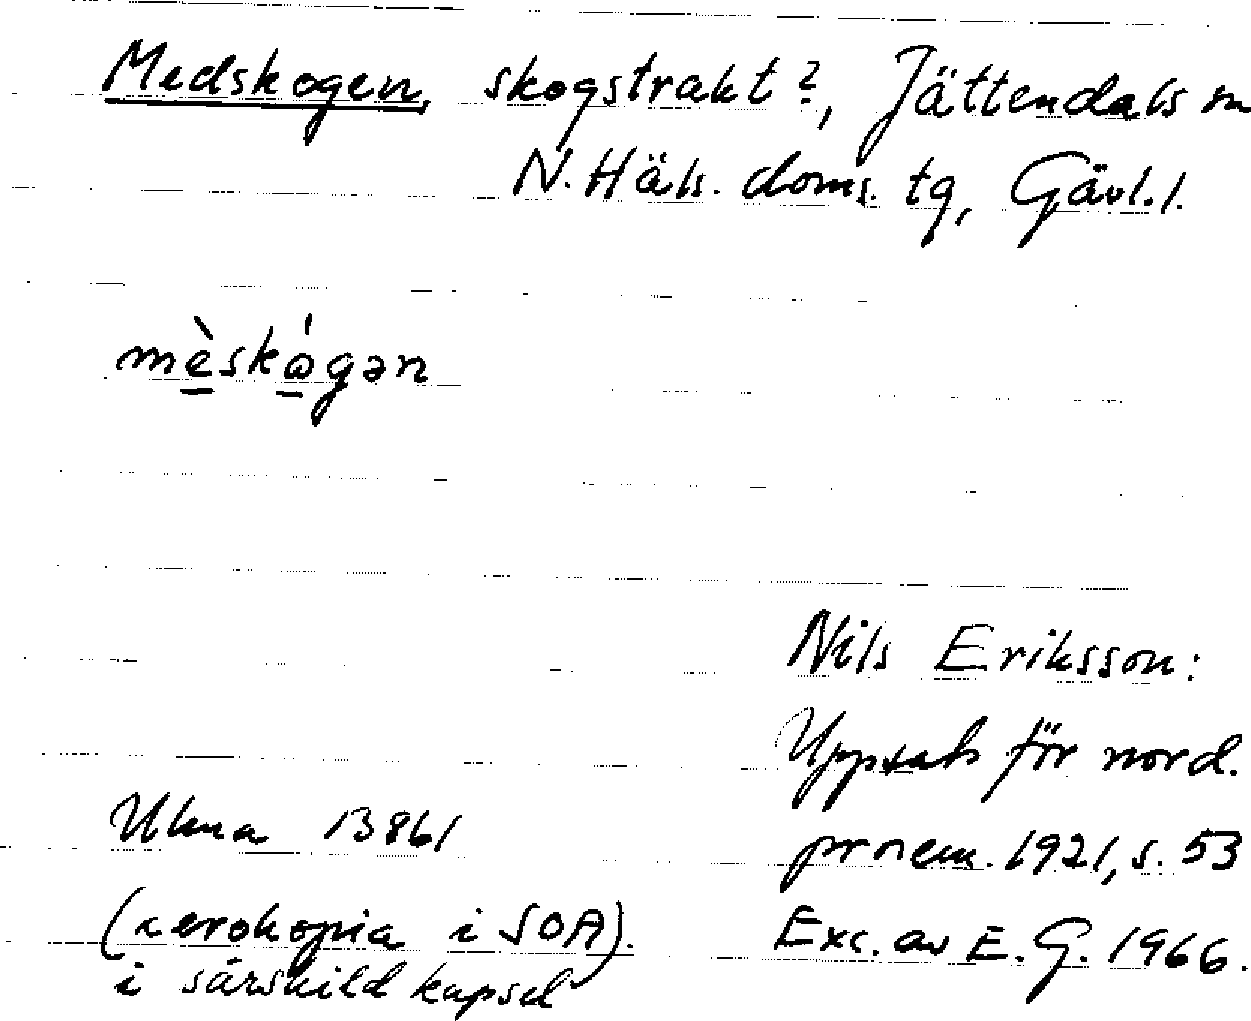 Medskogen, skogstrakt?, Jättendals sn
N. Häls. doms. tg, Gävl. l.
mèskógən
Nils Eriksson:
Uppsats för nord.
prosem. 1921, s. 53
Exc. av E. G. 1966.
Ulma 13861
(xerokopia i SOA).
i särskild kapsel